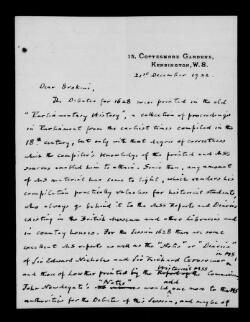 13, Cottesmore Gardens,
Kensington, W.8.
21st December 1922
Dear Erskine,
The Debates for 1628 were printed in the old
"Parliamentary History", a collection of proceedings
in Parliament from the earliest times compiled in the
18th century, but only with that degree of correctness
which the compiler's knowledge of the printed and MSS
sources enabled him to attain. Since then, any amount
of MS material has come to light, which renders his
compilation practically valueless for historical students,
who always go behind it to the MSS Reports and Diaries
existing in the British Museum and other libraries and
in country houses. For the Session 1628 there are some
excellent MS reports as well as the "Notes" or "Diaries"
of Sir Edward Nicholas and Sir Richard Grosvenor in MS
and those of printed by the Historical MSS Commission
John Newdegate's "Notes" would add one more to the MS
authorities for the Debates of this Session, and maybe of